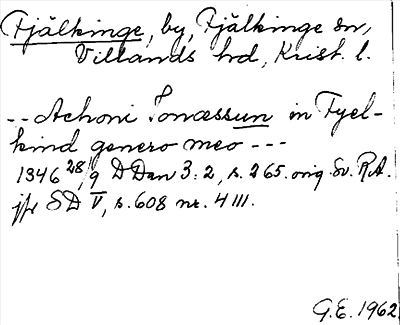 Fjälkinge, by, Fjälkinge sn,
Villands hd, Krist. l.
-- Achoni Jonæssun in Fyel-
kind genero meo ---
1346 28/9 D Dan 3:2, s. 265. orig. Sv. R.A.
jfr SD V, s. 608 nr. 4111.
G.E. 1962